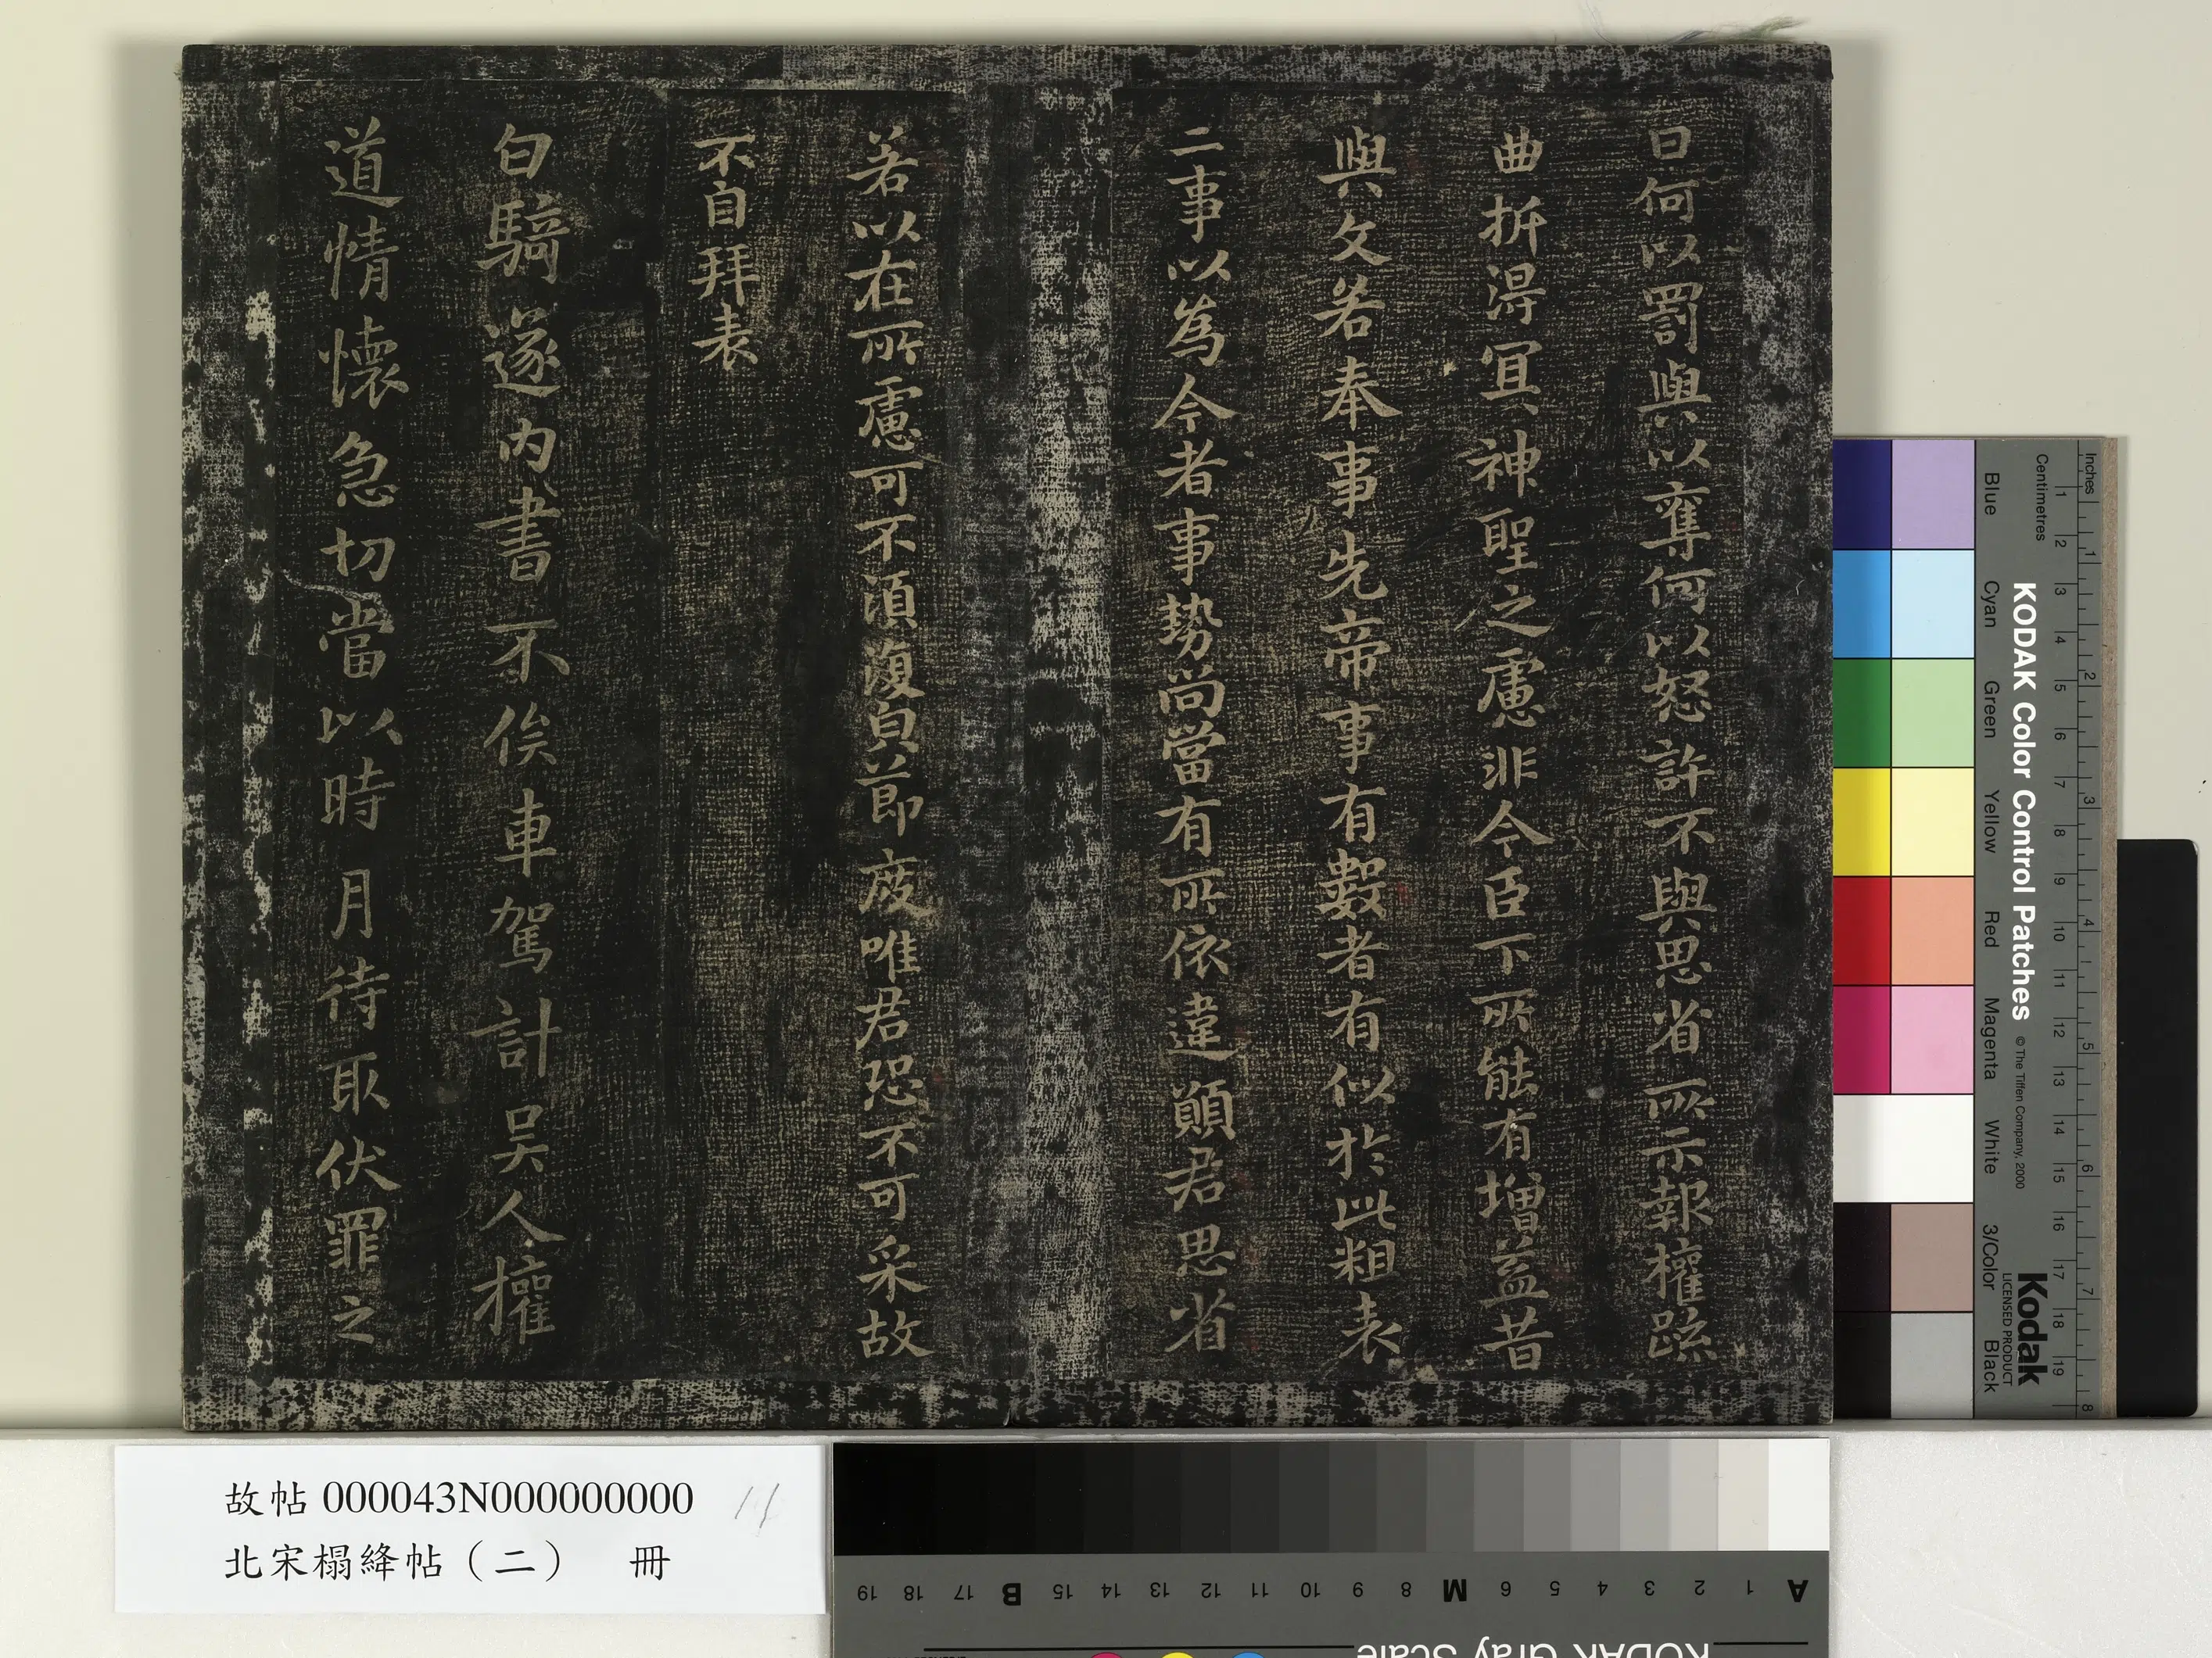 曰何以罰與以奪何以怒許不與思省所示報權疏
曲折得宜神聖之慮非今臣下所能有增益昔
與文若奉事先帝事有數者有似於此粗表
二事以為今者事勢尚當有所依違願君思省
若以在所慮可不須復白節度唯君恐不可采故
不自拜表
白騎遂內書不俟車駕計吳人權
道情懷急切當以時月待取伏罪之
故帖000043N000000000 11
北宋榻絳帖（二） 冊
KODAK Color Control Patches © The Tiffen Company, 2000
Kodak
LICENSED PRODUCT
Inches 1 2 3 4 5 6 7 8
Centimetres 1 2 3 4 5 6 7 8 9 10 11 12 13 14 15 16 17 18 19
Blue Cyan Green Yellow Red Magenta White 3/Color Black
A 1 2 3 4 5 6 M 8 9 10 11 12 13 14 15 B 17 18 19
KODAK Gray Scale